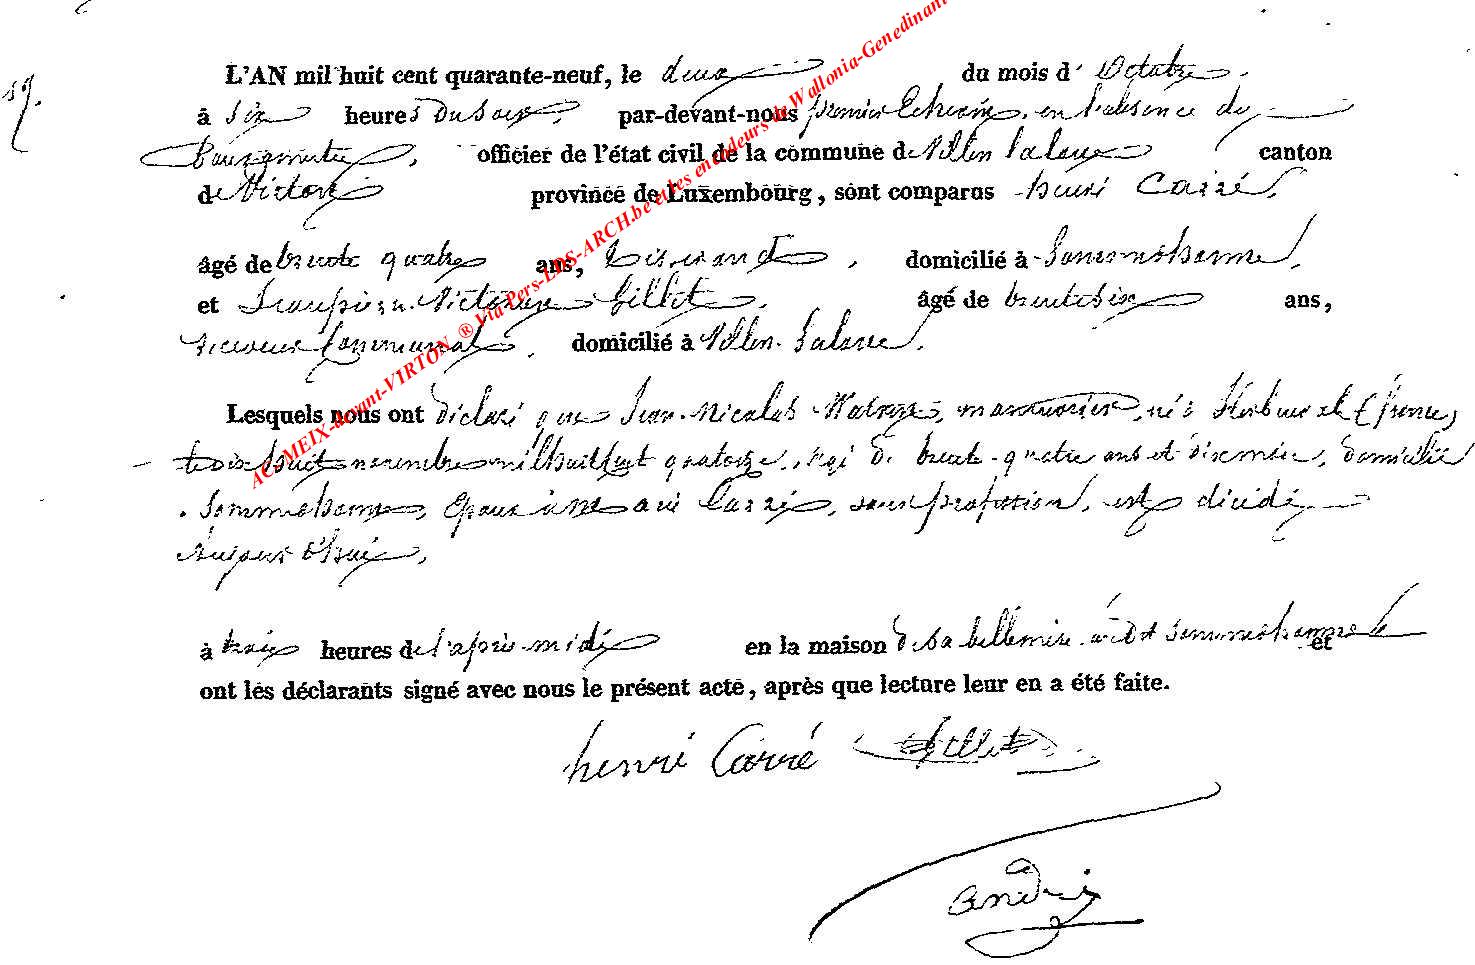 19.
L'AN mil huit cent quarante-neuf, le deux du mois d'Octobre.
à Six heures du soir, par-devant-nous premier Echevin, en l'absence du
Bourgmestre, officier de l'état civil de la commune de Villers la Loue canton
de Virton province de Luxembourg, sont comparus henri Carré,
âgé de trente quatre ans, Tisserand, domicilié à Sommethonne,
et Jean pierre Victor Gillet, âgé de trente six ans,
receveur Communal, domicilié à Villers la Loue,
Lesquels nous ont déclaré que Jean Nicolas manouvrier, né à (france)
le dix huit novembre mil huit cent quatorze, agé de trente-quatre ans et dix mois, domicilié
à Sommethonne, Epoux à Marie Carré, sans profession, est décédé
aujourd'hui,
à trois heures de l'après-midi en la maison de sa belle mère à dit Sommethonne et
ont les déclarants signé avec nous le présent acte, après que lecture leur en a été faite.
henri Carré Gillet
André
AC-MEIX-devant-VIRTON ® Via Pers-LDS-ARCH.be et les encodeurs de Wallonia-Genedinant